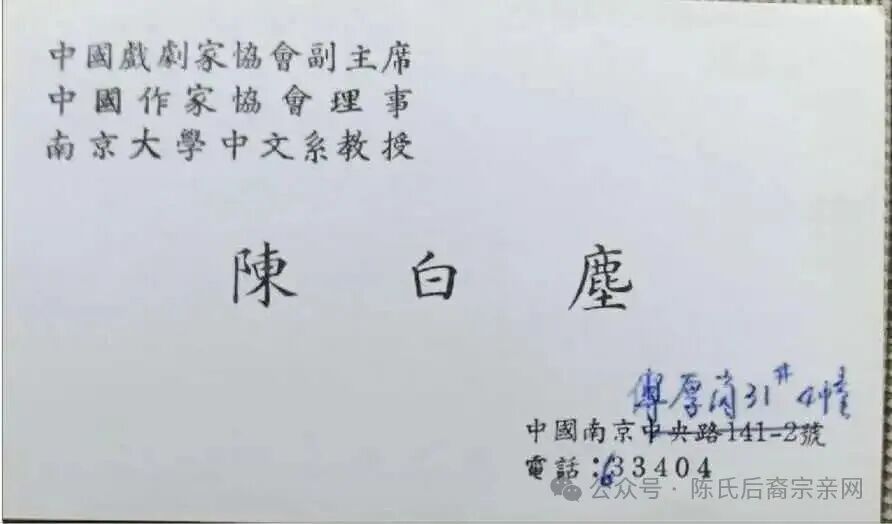 中國戯劇家協會副主席
中國作家協會理事
南京大學中文系教授
陳白塵
傅厚崗31#4幢
中國南京中央路141-2號
電話:633404
公众号·陈氏后裔宗亲网